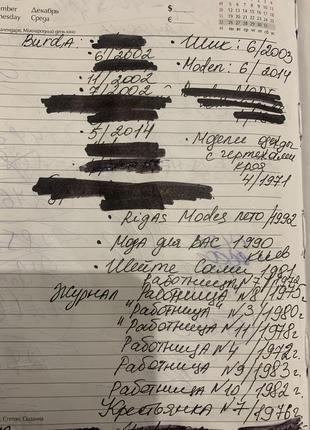 Декабрь
Среда
$
€
Burda:
6/2002
11/2002
7/2002
5/2014
• Шик: 6/2003
• Moden: 6/2014
• Модели одежды
с чертежами
кроя
4/1971
• Rigas Modes лето/1992
• Мода для ВАС 1990
Киев
• Шейте Сами 1981
Журнал
"Работница" №8/1975г
"Работница" №3/1980г
"Работница" №11/1978г
Работница №4/1972г.
Работница №9/1983г.
Работница №10/1982г.
Крестьянка №7/1976г